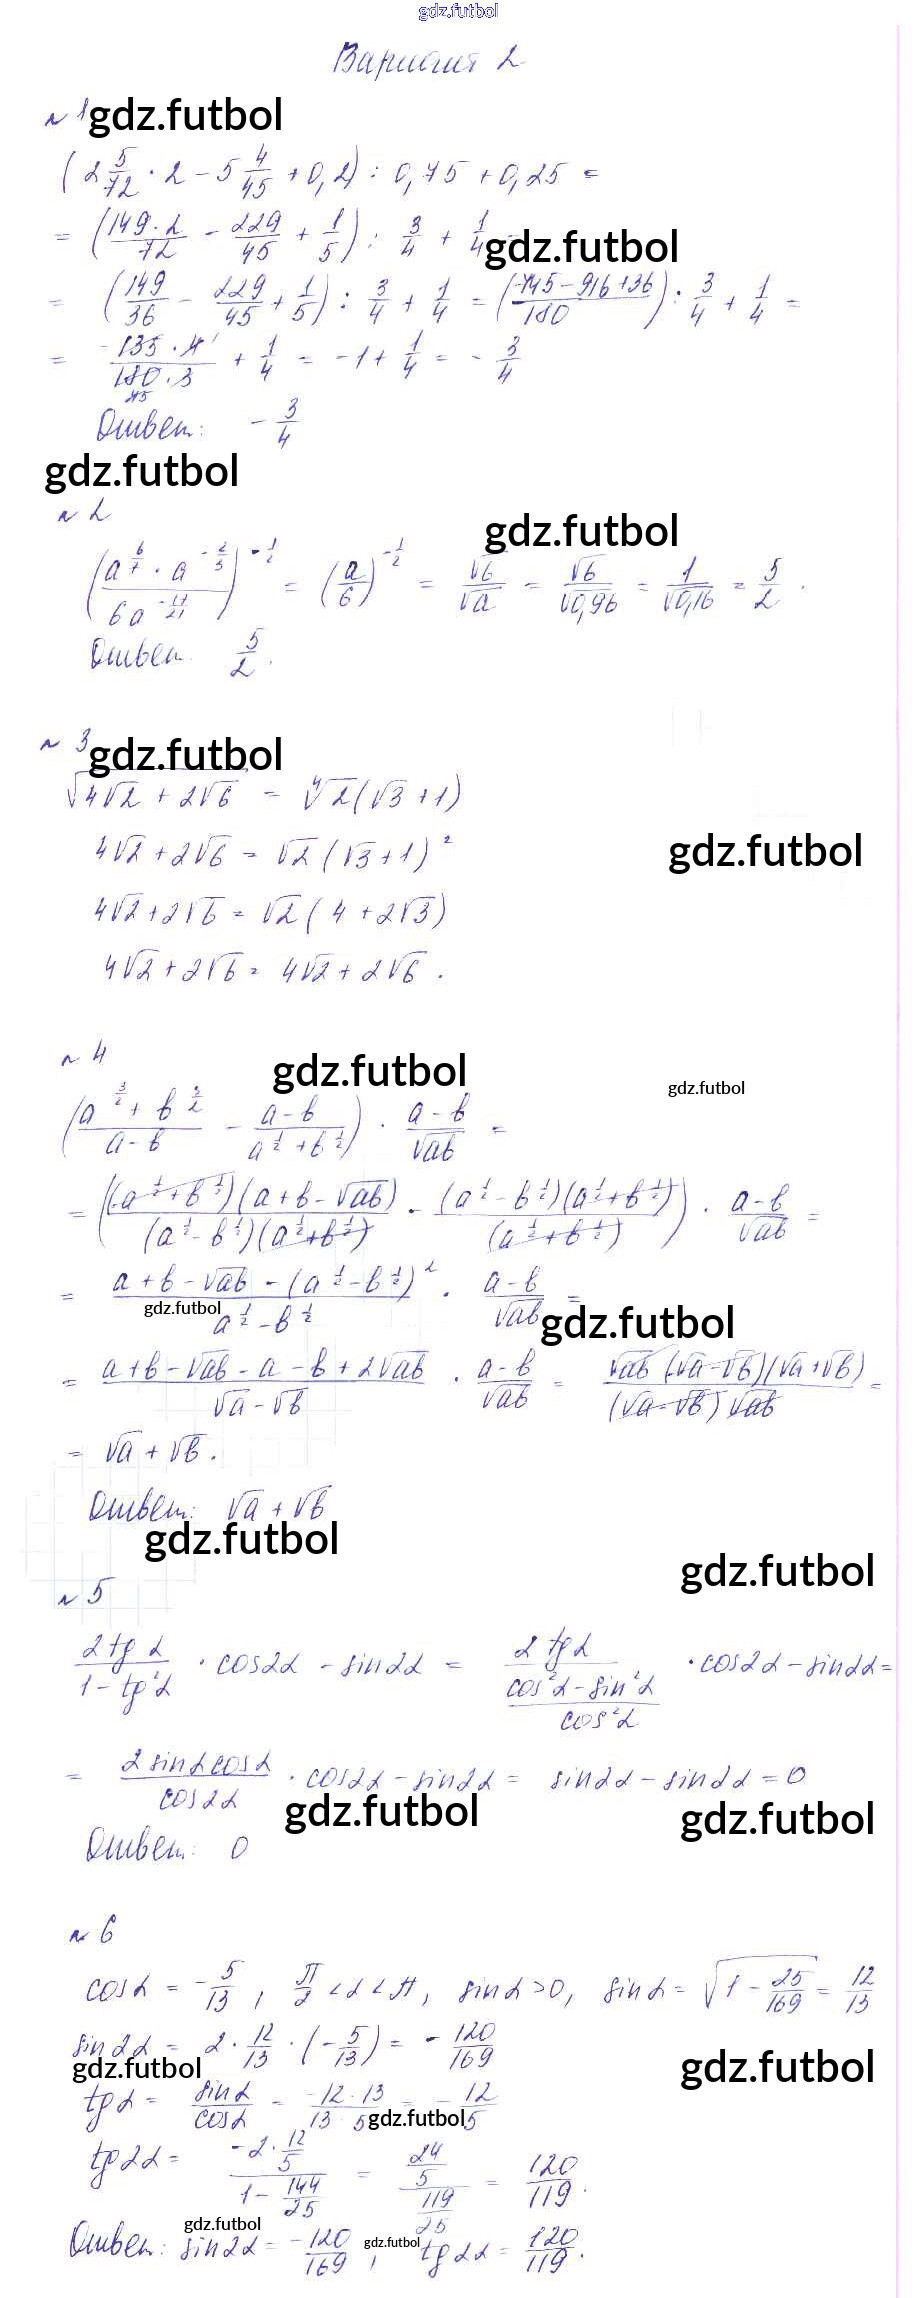 gdz.futbol
Вариант 2
№ 1 gdz.futbol
(2 5/72 · 2 − 5 4/45 + 0,2) : 0,75 + 0,25 =
= (149·2/72 − 229/45 + 1/5) : 3/4 + 1/4 =
gdz.futbol
= (149/36 − 229/45 + 1/5) : 3/4 + 1/4 = (745 − 916 + 36/180) : 3/4 + 1/4 =
= −135·4/180·3 + 1/4 = −1 + 1/4 = −3/4
Ответ: −3/4
gdz.futbol
№ 2
gdz.futbol
(a^(6/7) · a^(−2/3)/6a^(−17/21))^(−1/2) = (a/6)^(−1/2) = √6/√a = √6/√0,96 = 1/√0,16 = 5/2.
Ответ: 5/2.
№ 3 gdz.futbol
√(4√2 + 2√6) = ⁴√2(√3 + 1)
4√2 + 2√6 = √2(√3 + 1)²
gdz.futbol
4√2 + 2√6 = √2(4 + 2√3)
4√2 + 2√6 = 4√2 + 2√6.
№ 4
gdz.futbol
gdz.futbol
(a^(3/2) + b^(3/2)/a − b − a − b/a^(1/2) + b^(1/2)) · a − b/√ab =
= ((a^(1/2) + b^(1/2))(a + b − √ab)/(a^(1/2) − b^(1/2))(a^(1/2) + b^(1/2)) − (a^(1/2) − b^(1/2))(a^(1/2) + b^(1/2))/(a^(1/2) + b^(1/2))) · a − b/√ab =
= a + b − √ab − (a^(1/2) − b^(1/2))²/a^(1/2) − b^(1/2) · a − b/√ab =
gdz.futbol
gdz.futbol
= a + b − √ab − a − b + 2√ab/√a − √b · a − b/√ab = √ab(√a − √b)(√a + √b)/(√a − √b)√ab =
= √a + √b.
Ответ: √a + √b
gdz.futbol
gdz.futbol
№ 5
2tgα/1 − tg²α · cos2α − sin2α = 2tgα/(cos²α − sin²α/cos²α) · cos2α − sin2α =
= 2sinαcosα/cos2α · cos2α − sin2α = sin2α − sin2α = 0
gdz.futbol
gdz.futbol
Ответ: 0
№ 6
cosα = −5/13, π/2 < α < π, sinα > 0, sinα = √(1 − 25/169) = 12/13
sin2α = 2 · 12/13 · (−5/13) = −120/169
gdz.futbol
gdz.futbol
tgα = sinα/cosα = −12·13/13·5 = −12/5
gdz.futbol
tg2α = −2·12/5/(1 − 144/25) = 24/5/(119/25) = 120/119.
gdz.futbol
Ответ: sin2α = −120/169, tg2α = 120/119.
gdz.futbol